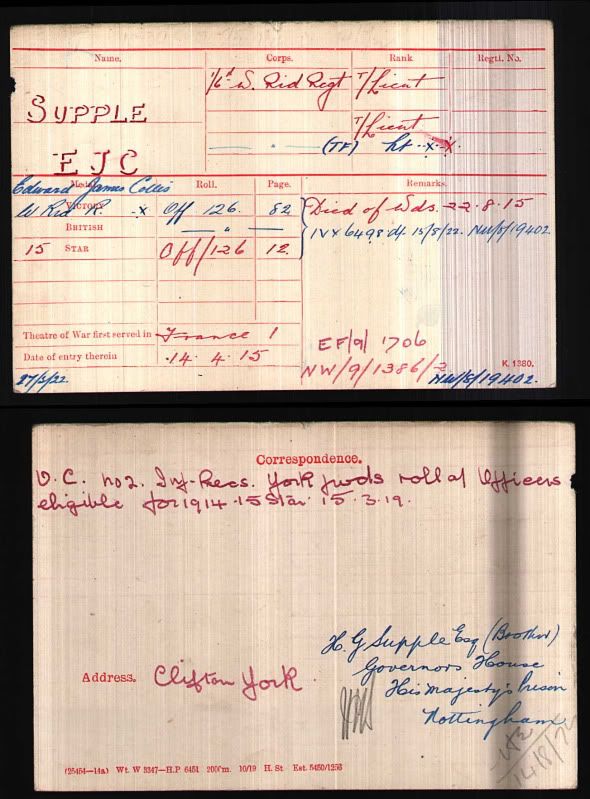 Name. Corps. Rank Regtl. No.
1/6th W. Rid Regt T/Lieut
SUPPLE
T/Lieut
E J C — " — (TF) Lt -x- x.
Edward James Collis
Medal. Roll. Page. Remarks.
VICTORY W Rid R. -x Off. 126. 82 Died of Wds. 22.8.15
BRITISH — " — IVX 6498 df. 15/8/22. NW/5/19402.
15 STAR Off/126 12.
Theatre of War first served in France 1
EF/9/ 1706
Date of entry therein 14. 4. 15
NW/9/1386/2 K. 1380.
27/3/22. NW/5/19402.
Correspondence.
O.C. No 2. Inf-Recs. York fwds roll of Officers
eligible for 1914.15 Star. 15.3.19.
H. G Supple Esq (Brother)
Governors House
Address. Clifton York
His Majesty's Prison
Nottingham
14/8/22
(25454—14a) Wt. W 3347—H.P 6451 200m. 10/19 H. St Est. 5450/1256